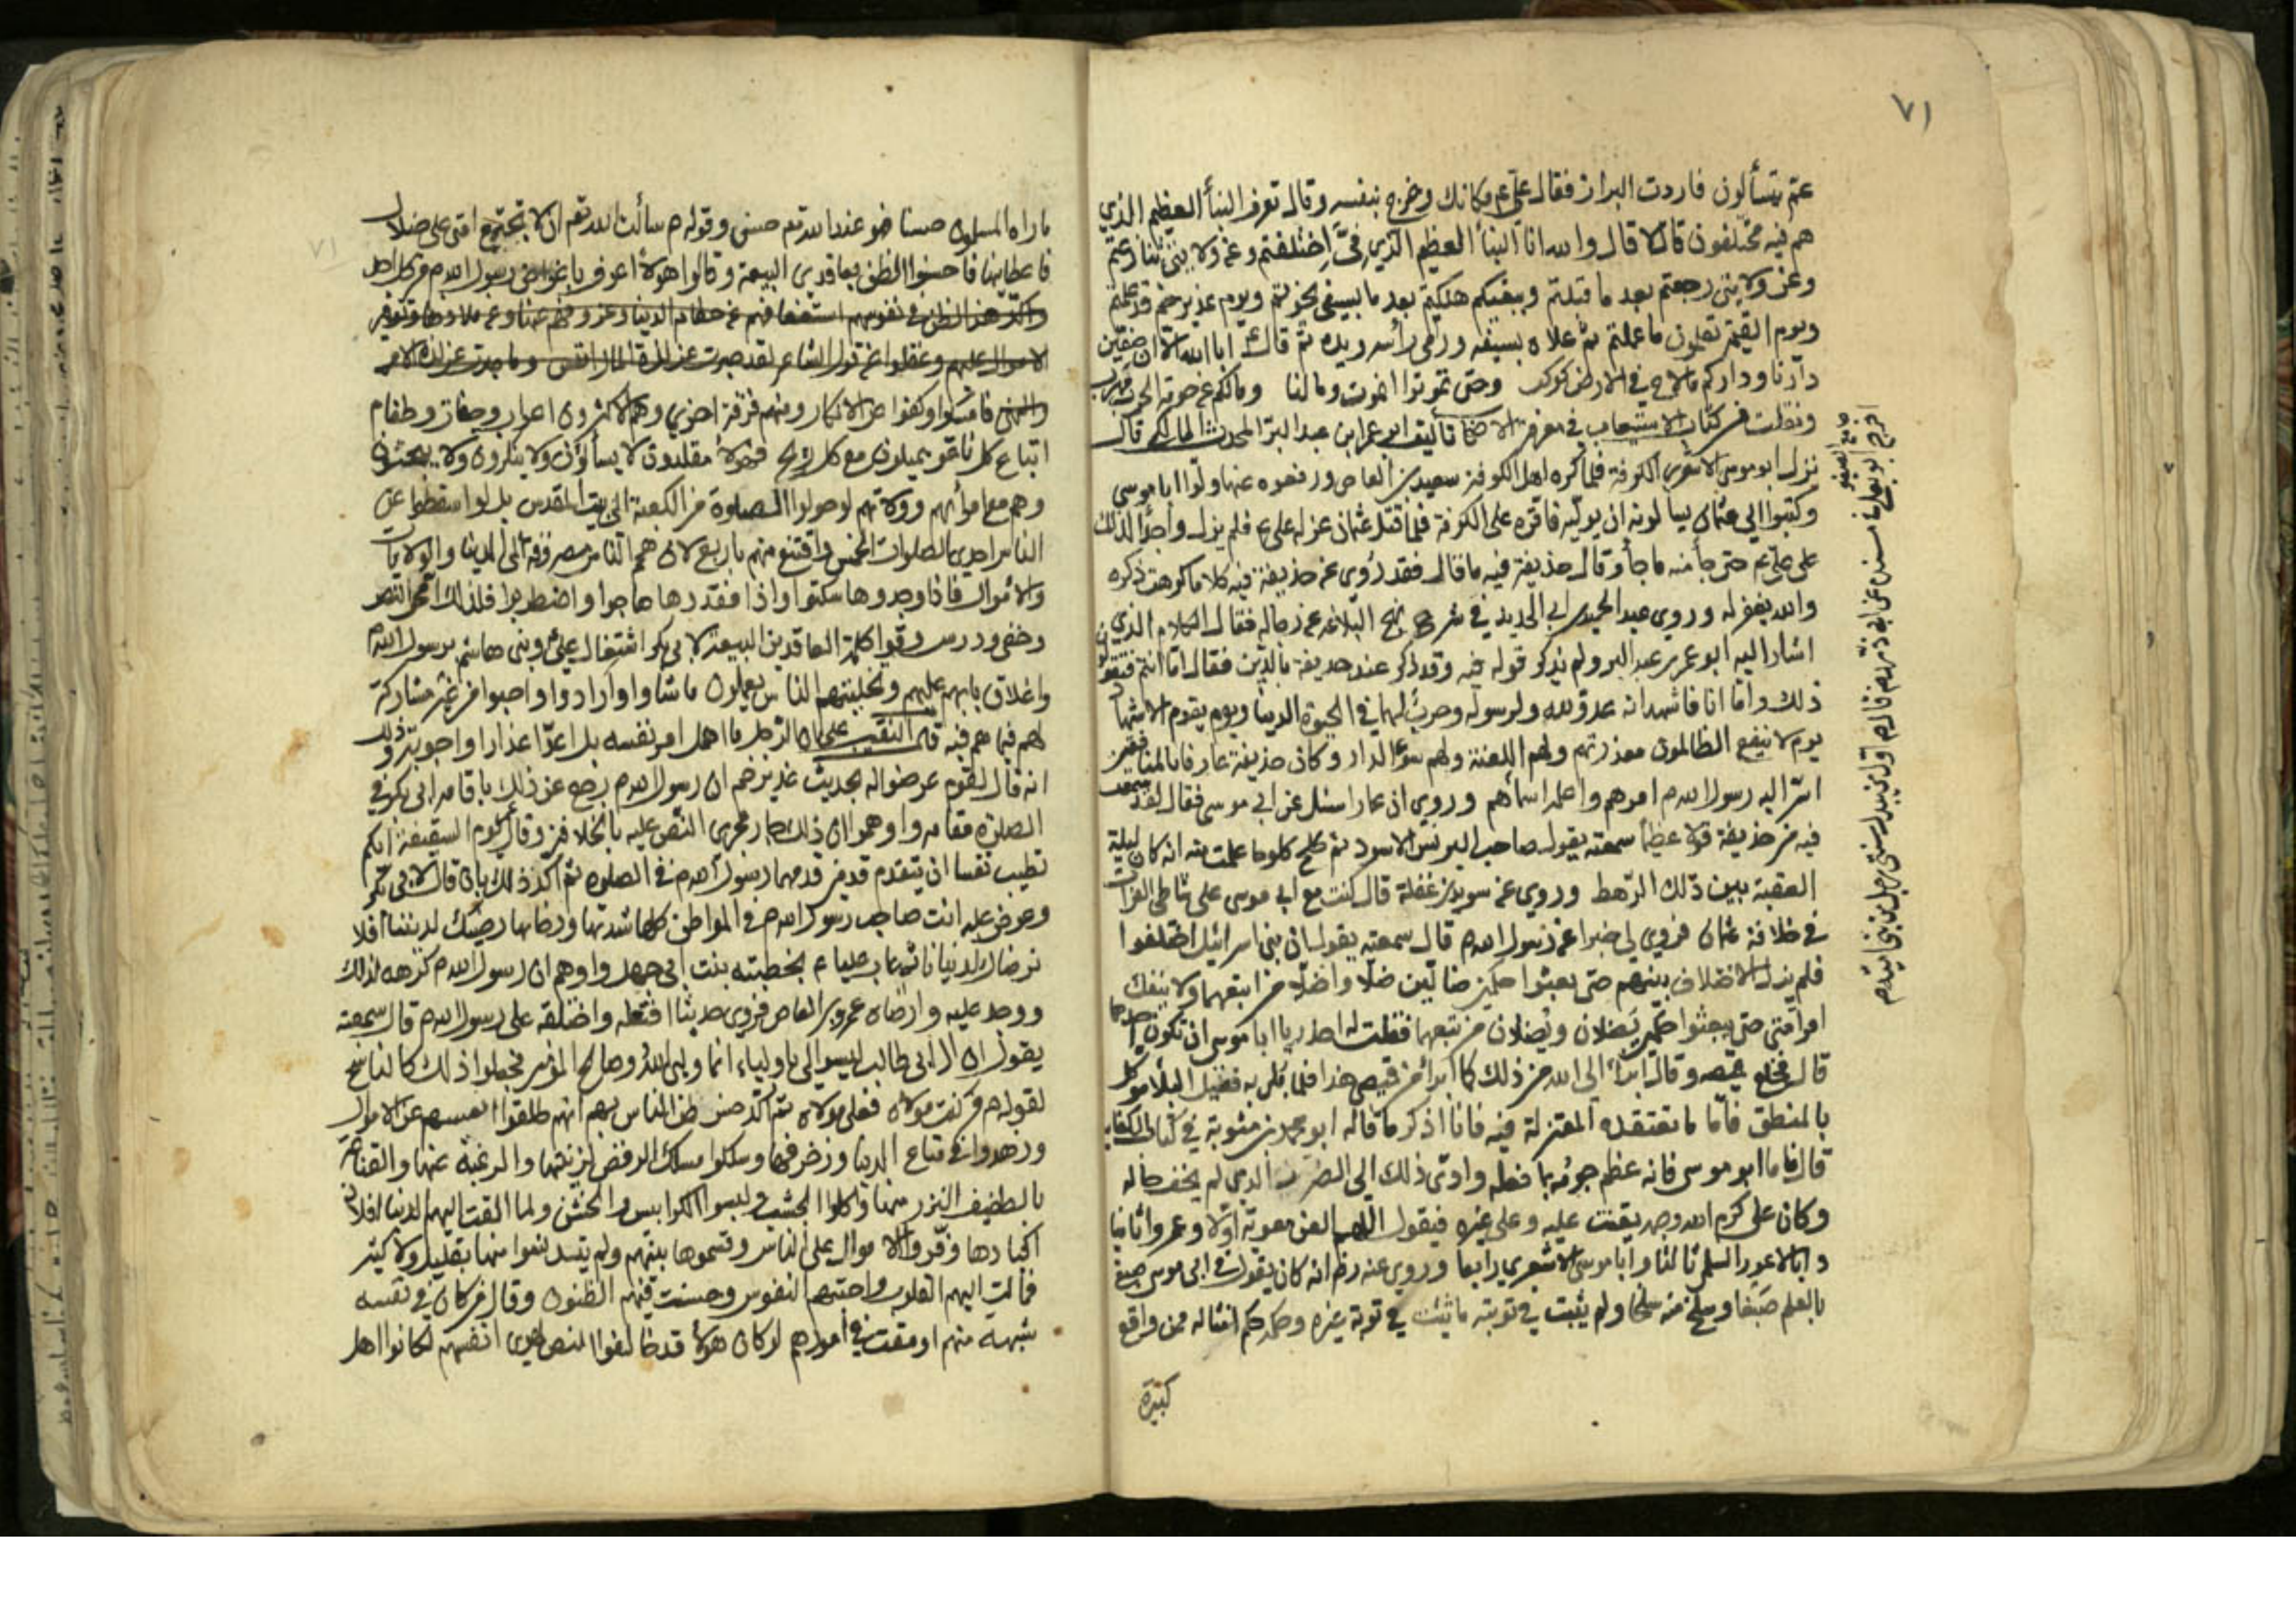 ٧١
عم يتسألون فاردت البراز فقال علي ع مكانك وخرج بنفسه وقال تعرف النبأ العظيم الذي
هم فيه مختلفون قال لا قال والله انا النبأ العظيم الذي فيّ اختلفتم وعن ولايتي تنازعتم
وعن ولايتي رجعتم بعد ما قبلتم وببغيكم هلكتم بعد ما بسيفي نجوتم ويوم غدير خم قد علمتم
ويوم القيمة تعلمون ما عملتم ثم علاه بسيفه ورمى رأسه ويده ثم قال ابا الله الا ان صفين
دارنا وداركم ما لاح في الارض كوكب وحتى تموتوا او نموت وما لنا ومالكم عن حومة الحرب مهرب
ونقلت من كتاب الاستيعاب في معرفة الاصحاب تأليف ابو عمر ابن عبد البر المحدث المالكي قال
نزل ابو موسى الاشعري الكوفة فلما كره اهل الكوفة سعيد بن العاص ودفعوه عنها ولّوا ابا موسى
وكتبوا الى عثمان يسألونه ان يوليه فاقره على الكوفة فلما قتل عثمان عزله علي ع فلم يزل واجدًا لذلك
على علي ع حتى جأ منه ما جأ وقال حذيفة فيه ما قال فقد روى عن حذيفة فيه كلاما كرهت ذكره
والله يغفر له وروى عبد الحميد بن ابي الحديد في شرح نهج البلاغه عن رجاله فقال الكلام الذي
اشار اليه ابو عمر بن عبد البر ولم يذكر قوله فيه وقد ذكر عند حذيفة بالدين فقال اما انتم فتقولون
ذلك واما انا فاشهد انه عدو لله ولرسوله وحرب لهما في الحيوة الدنيا ويوم يقوم الاشهاد
يوم لا ينفع الظالمون معذرتهم ولهم اللعنة ولهم سوء الدار وكان حذيفة عارفا بالمنافقين
اسرّ اليه رسول الله م امرهم واعلمه اسمأهم وروي ان عمارا سئل عن ابي موسى فقال لقد سمعت
فيه من حذيفة قولا عظيما سمعته يقول صاحب البرنس الاسود ثم كلح كلوحا علمت منه انه كان ليلة
العقبة بين ذلك الرهط وروي عن سويد بن غفلة قال كنت مع ابي موسى على شاطئ الفرات
في خلافة عثمان فروى لي خبرا عن رسول الله م قال سمعته يقول ان بني اسرائيل اختلفوا
فلم يزل الاختلاف بينهم حتى بعثوا حكمين ضالين ضلا واضلا من اتبعهما ولا ينفك
امر امتي حتى يبعثوا حكمين يَضلان ويُضلان من تبعهما فقلت له احذر يا ابا موسى ان تكون احدهما
قال فخلع قميصه وقال ابرأ الى الله من ذلك كما ابرأ من قميصي هذا فلما بلي به فقيل البلأ موكل
بالمنطق فاما ما تعتقده المعتزلة فيه فانا اذكر ما قاله ابو محمد بن متويه في كتاب الكفاية
قال فاما ابو موسى فانه عظم جرمه بما فعله وادى ذلك الى الضرر الذي لم يخف حاله
وكان علي كرم الله وجهه يقنت عليه وعلى غيره فيقول اللهم العن معوية اولا وعمروا ثانيا
وابا الاعور السلمي ثالثا وابا موسى الاشعري رابعا وروي عنه رض انه كان يقول في ابي موسى صبغ
بالعلم صبغا وسلخ منه سلخا ولم يثبت في توبته ما ثبت في توبة غيره وحكمه حكم امثاله ممن واقع
كبيرة
ما راه المسلمون حسنا فهو عند الله تع حسن وقوله م سألت الله تع ان لا تجتمع امتي على ضلال
فاعطانيها فاحسنوا الظن بعاقدي البيعة وقالوا هولأ اعرف باغراض رسول الله م من كل احد
واكد هذا الظن في نفوسهم
الاموال عليهم وغفلوا عن قول الشاعر لقد صبرت عن لذة المال انفس وما صبرت عن لذة الامر
والنهي فامسكوا وكفوا عن الانكار ومنهم فرقة اخرى وهم الاكثرون اعراب وجفاة وطغام
اتباع كل ناعق يميلون مع كل ريح فهولأ مقلدون لا يسألون ولا ينكرون ولا يبحثون
وهم مع امرائهم وولاتهم لو حولوا الصلوة من الكعبة الى بيت المقدس بل لو اسقطوا عن
الناس احدى الصلوات الخمس واقتنع منهم باربع لان همم الناس مصروفة الى الدنيا والولايات
والاموال فاذا وجدوها سكتوا واذا فقدوها هاجوا واضطربوا فلذلك امحى النص
وخفي ودرس وقوى كلمة العاقدين البيعة لابي بكر اشتغال علي وبني هاشم برسول الله م
واغلاق بابهم عليهم وتخليتهم الناس يعملون ما شاوا وارادوا واحبوا من غير مشاركة
لهم فيما هم فيه قلت النقيب على ان الرجل ما اهمل امر نفسه بل اعد اعذارا واجوبة وذلك
انه قال لقوم عرضوا له بحديث غدير خم ان رسول الله م رجع عن ذلك باقامه ابي بكر في
الصلوة مقامه واوهم ان ذلك جار مجرى النص عليه بالخلافة وقال يوم السقيفة ايكم
تطيب نفسا ان يتقدم قدمين قدمهما رسول الله م في الصلوه ثم اكد ذلك بان قال لابي بكر
وعرض عليه انت صاحب رسول الله م في المواطن كلها شدتها ورخائها رضيك لديننا افلا
نرضاك لدنيانا ثم عاب عليا ع بخطبته بنت ابي جهل واوهم ان رسول الله م كرهه لذلك
ووجد عليه وارضاه عمرو بن العاص فروى حديثا افتعله واختلقه على رسول الله م قال سمعته
يقول ان ال ابي طالب ليسوا لي باولياء انما وليي الله وصالح المؤمنين فجعلوا ذلك كالناسخ
لقوله م من كنت مولاه فعلي مولاه ثم اكد حسن ظن الناس بهم انهم طلقوا انفسهم عن الاموال
وزهدوا في متاع الدنيا وزخرفها وسلكوا مسلك الرفض لزينتها والرغبة عنها والقناعة
بالطفيف النزر منها واكلوا الجشب ولبسوا الكرابيس والخشن ولما القت اليهم الدنيا افلاذ
اكبادها فرقوا الاموال على الناس وقسموها بينهم ولم يتدنسوا منها بقليل ولا كثير
فمالت اليهم القلوب واحبتهم النفوس وحسنت فيهم الظنون وقال من كان في نفسه
شبهة منهم او وقفة في امورهم لو كان هولأ قد خالفوا النص لهوى انفسهم لكانوا اهل